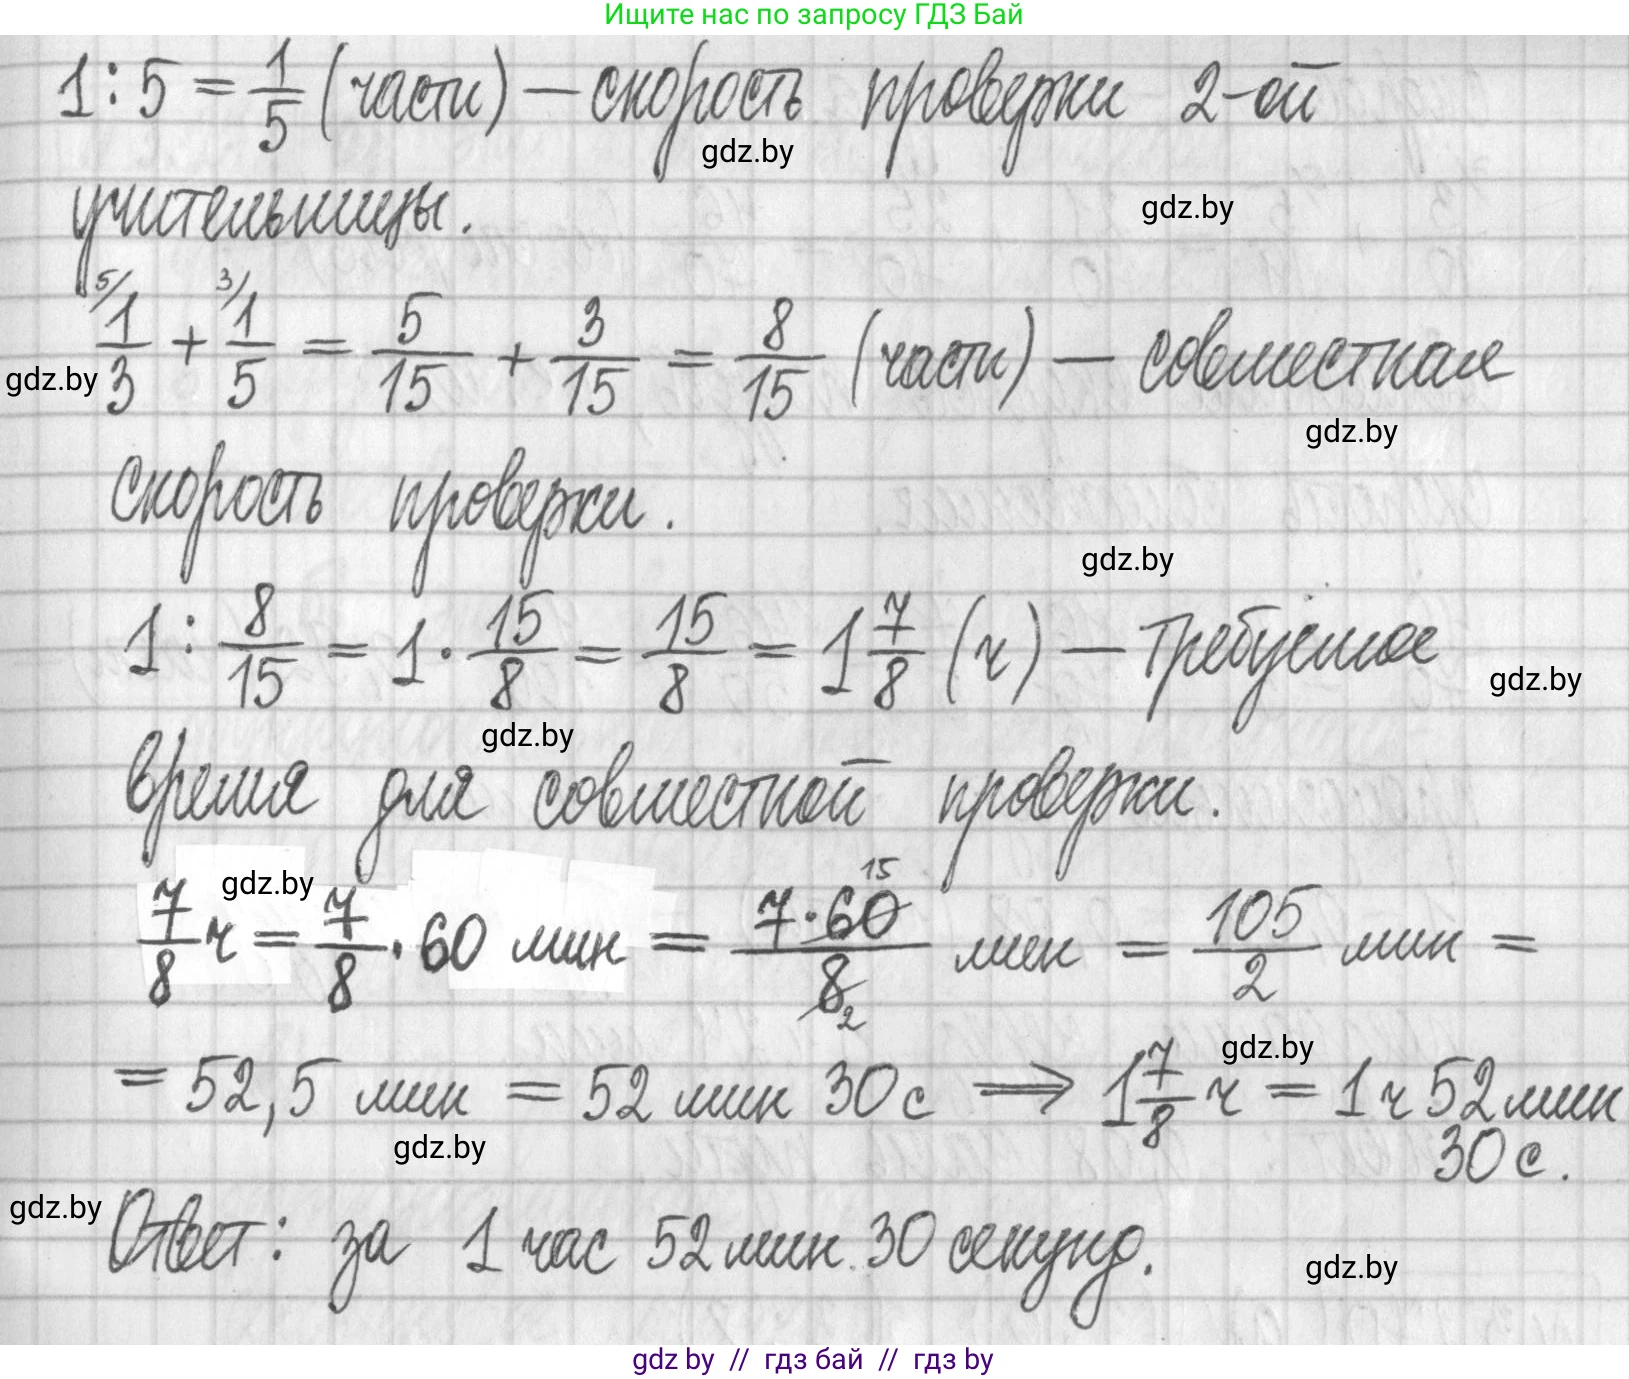 Ищите нас по запросу ГДЗ Бай
1 : 5 = 1/5 (части) — скорость проверки 2-ой
gdz.by
учительницы.
gdz.by
5/ 1/3 + 3/ 1/5 = 5/15 + 3/15 = 8/15 (части) — совместная
gdz.by
gdz.by
скорость проверки.
gdz.by
1 : 8/15 = 1 · 15/8 = 15/8 = 1 7/8 (ч) — требуемое
gdz.by
gdz.by
время для совместной проверки.
gdz.by
7/8 ч = 7/8 · 60 мин = 7·60 15 / 8 2 мин = 105/2 мин =
gdz.by
= 52,5 мин = 52 мин 30 с ⟹ 1 7/8 ч = 1 ч 52 мин
30 с.
gdz.by
gdz.by
Ответ: за 1 час 52 мин. 30 секунд.
gdz.by
gdz by // гдз бай // гдз by